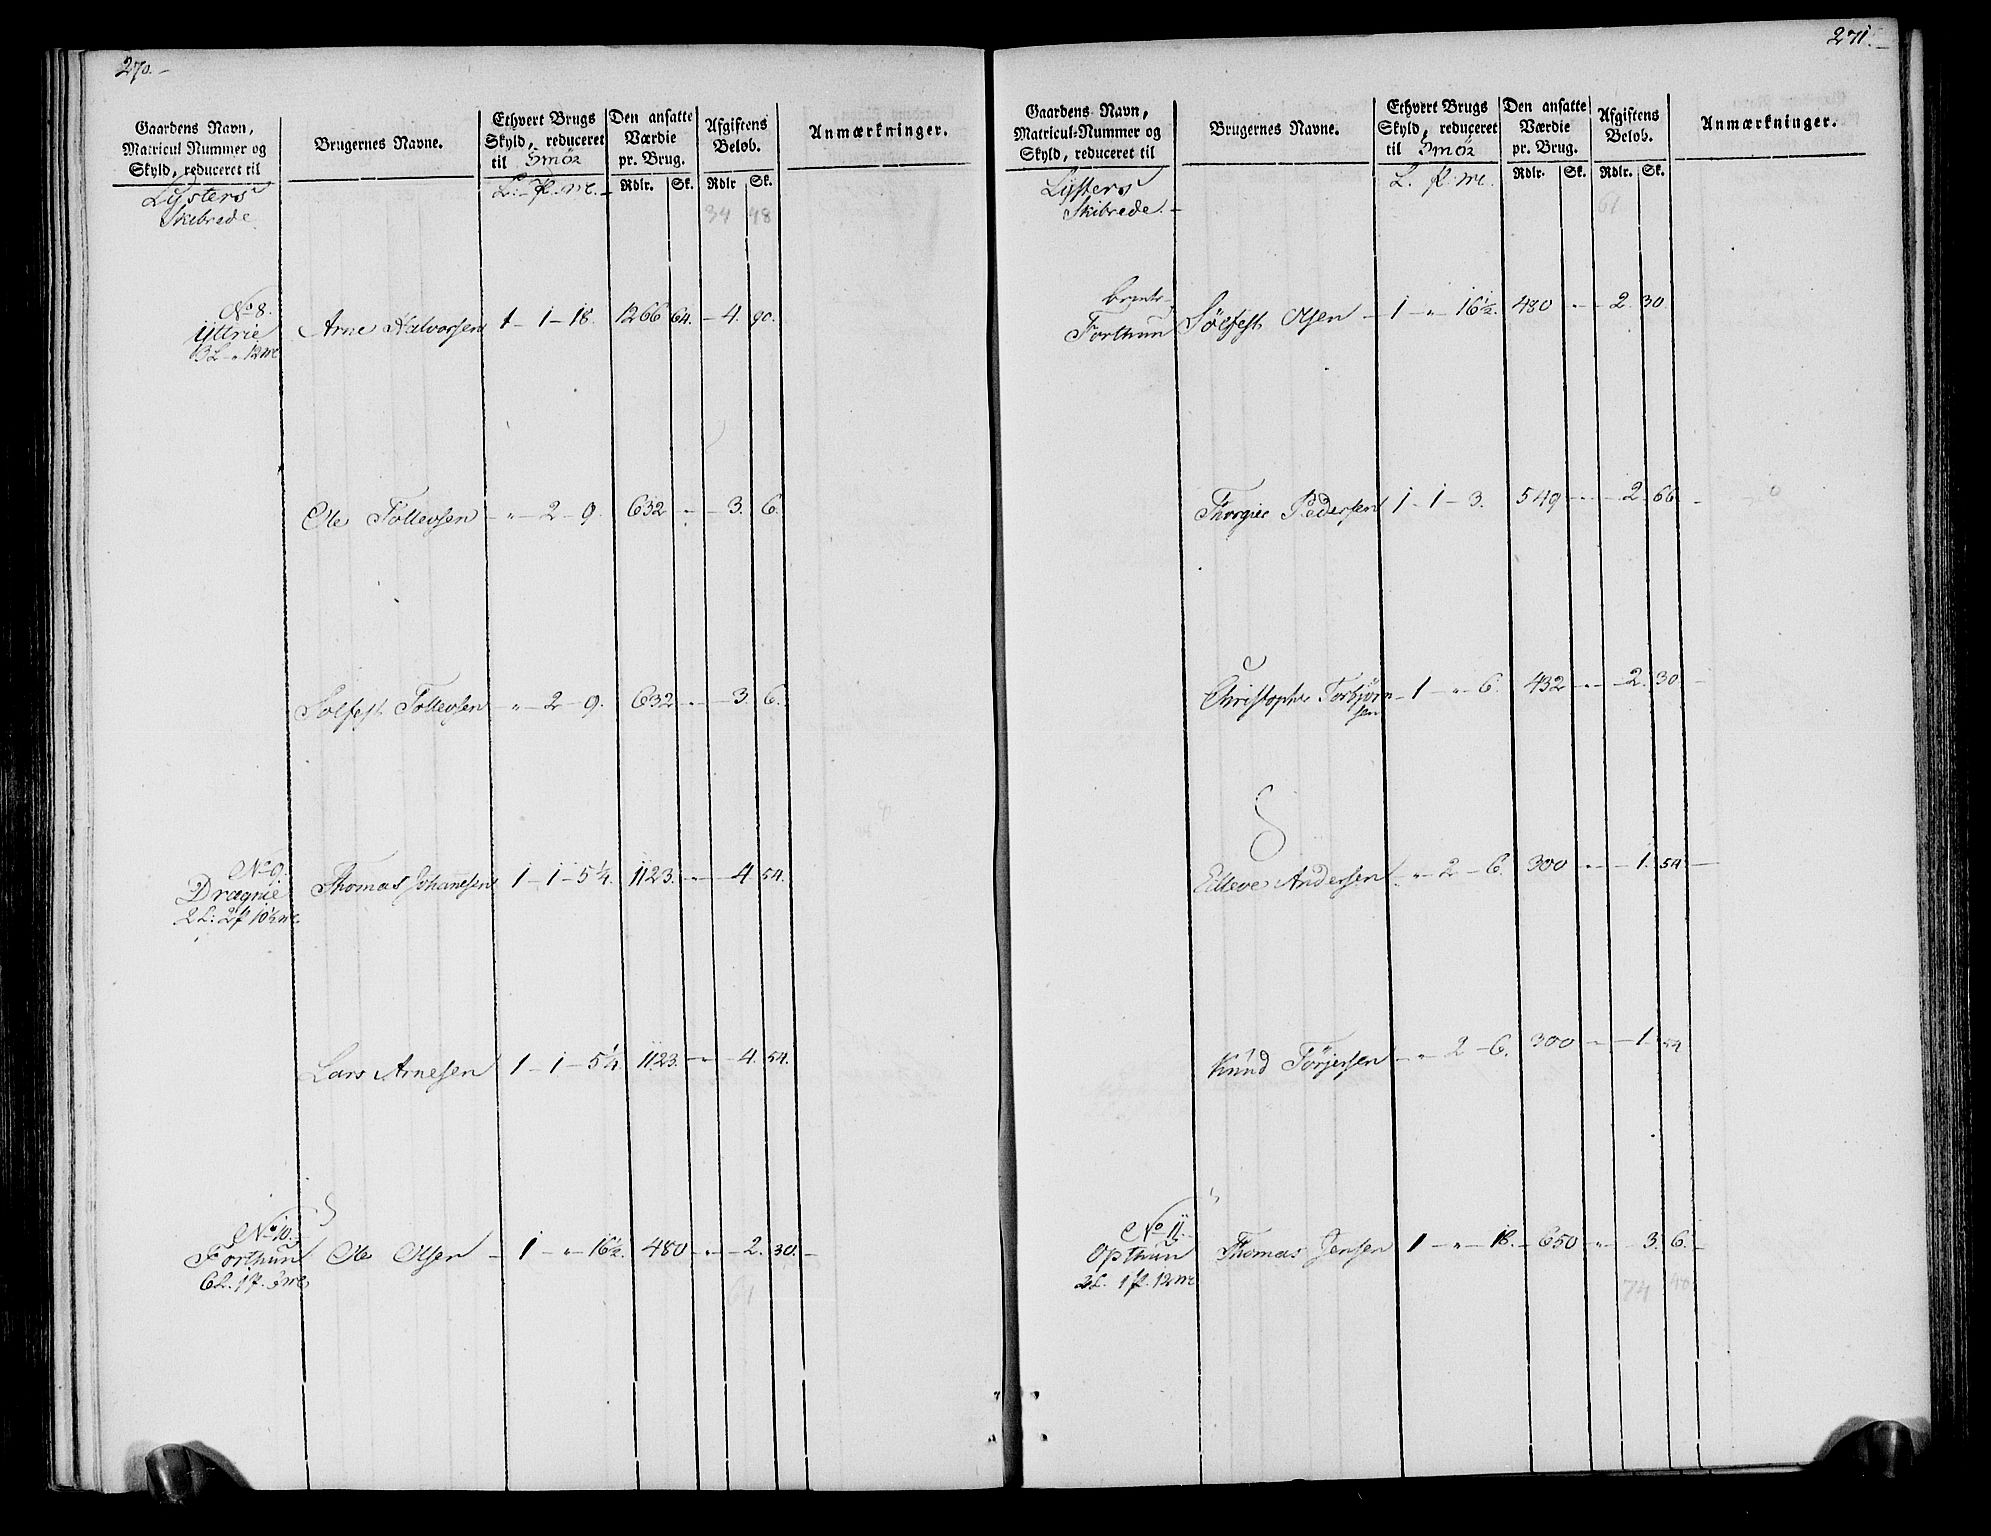 270.
Gaardens Navn,
Matricul Nummer og
Skyld, reduceret til
Brugernes Navne.
Ethvert Brugs
Skyld, reduceret
til Smør
Den ansatte
Værdie
pr. Brug.
Afgiftens
Beløb.
Anmærkninger.
Rdlr. Sk. Rdlr Sk.
Lysters
Skibrede.
L. - p. mr. -
34 48
No 8.
Yttrie
3 L - " 12 mr
Arne Halvorsen 1 - 1 - 18. 1266 64. - 4. 90.
Ole Tollevsen - " - 2 - 9. 632 - " - 3. 6.
Solfest Tollevsen - " - 2 - 9. 632 - " - 3. 6.
No 9.
Drægnie
2 L: 2 p 10½ mr.
Thomas Johannesen 1 - 1 - 5¼. 1123. - " - 4 54.
Lars Arnesen 1 - 1 - 5¼ 1123. - " - 4. 54.
No 10.
Forthun
6 L. 1 p. 3 mr
Ole Olsen - 1 - " - 16½. 480 - " - 2. 30. -
61
271.
Gaardens Navn,
Matricul-Nummer og
Skyld, reduceret til
Brugernes Navne.
Ethvert Brugs
Skyld, reduceret
til Smør
Den ansatte
Værdie
pr. Brug.
Afgiftens
Beløb.
Anmærkninger.
Rdlr. Sk. Rdlr. Sk.
Lysters
Skibrede. -
L. p. mr.
61
Forthun
Sølfest Olsen - 1 - " - 16½. 480 - " - 2. 30
Thorgier Pedersen 1 - 1 - 3. 549 - " - 2. 66 -
Christopher Torbjørn
sen
- 1 - " - 6. 432 - " - 2. 30. -
Eilleve Andersen - " - 2 - 6. 300 - " - 1. 54. -
Knud Torjersen - " - 2 - 6. 300 - " - 1. 54
No 11.
Opthun
2 L. 1 p. 12 mr
Thomas Jensen 1 - " - 18. - 650 - " - 3. 6. -
74 40